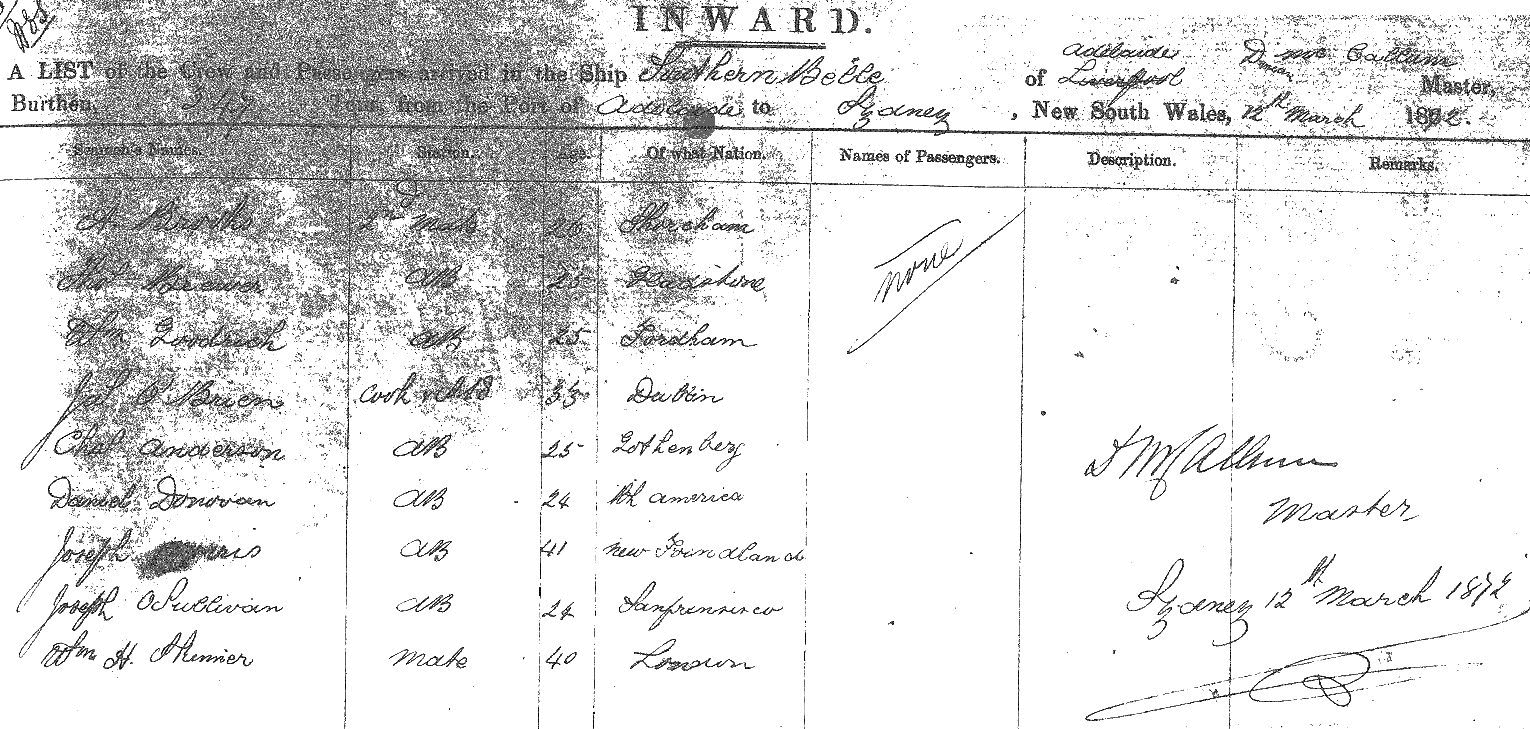 INWARD.
A LIST of the Crew and Passengers arrived in the Ship Southern Belle of Adelaide Liverpool D Mc Callum Master,
Burthen, Tons, from the Port of Adelaide to Sydney, New South Wales, 12th March 1872.
Seaman's Names. Station. Age. Of what Nation. Names of Passengers. Description. Remarks.
A. 2nd Mate 26 Shoreham
none
AB 25
Wm Goodrich AB 25 Fordham
Jas O'Brien Cook & 33 Dublin
Chas Anderson AB 25 Gothenberg
D McCallum
Daniel Donovan AB 24 Nh america
Master
Joseph AB 41 new Foindland
Joseph OSullivan AB 24 Sanfrensisco
Sydney 12th March 1872
Wm H. mate 40 London